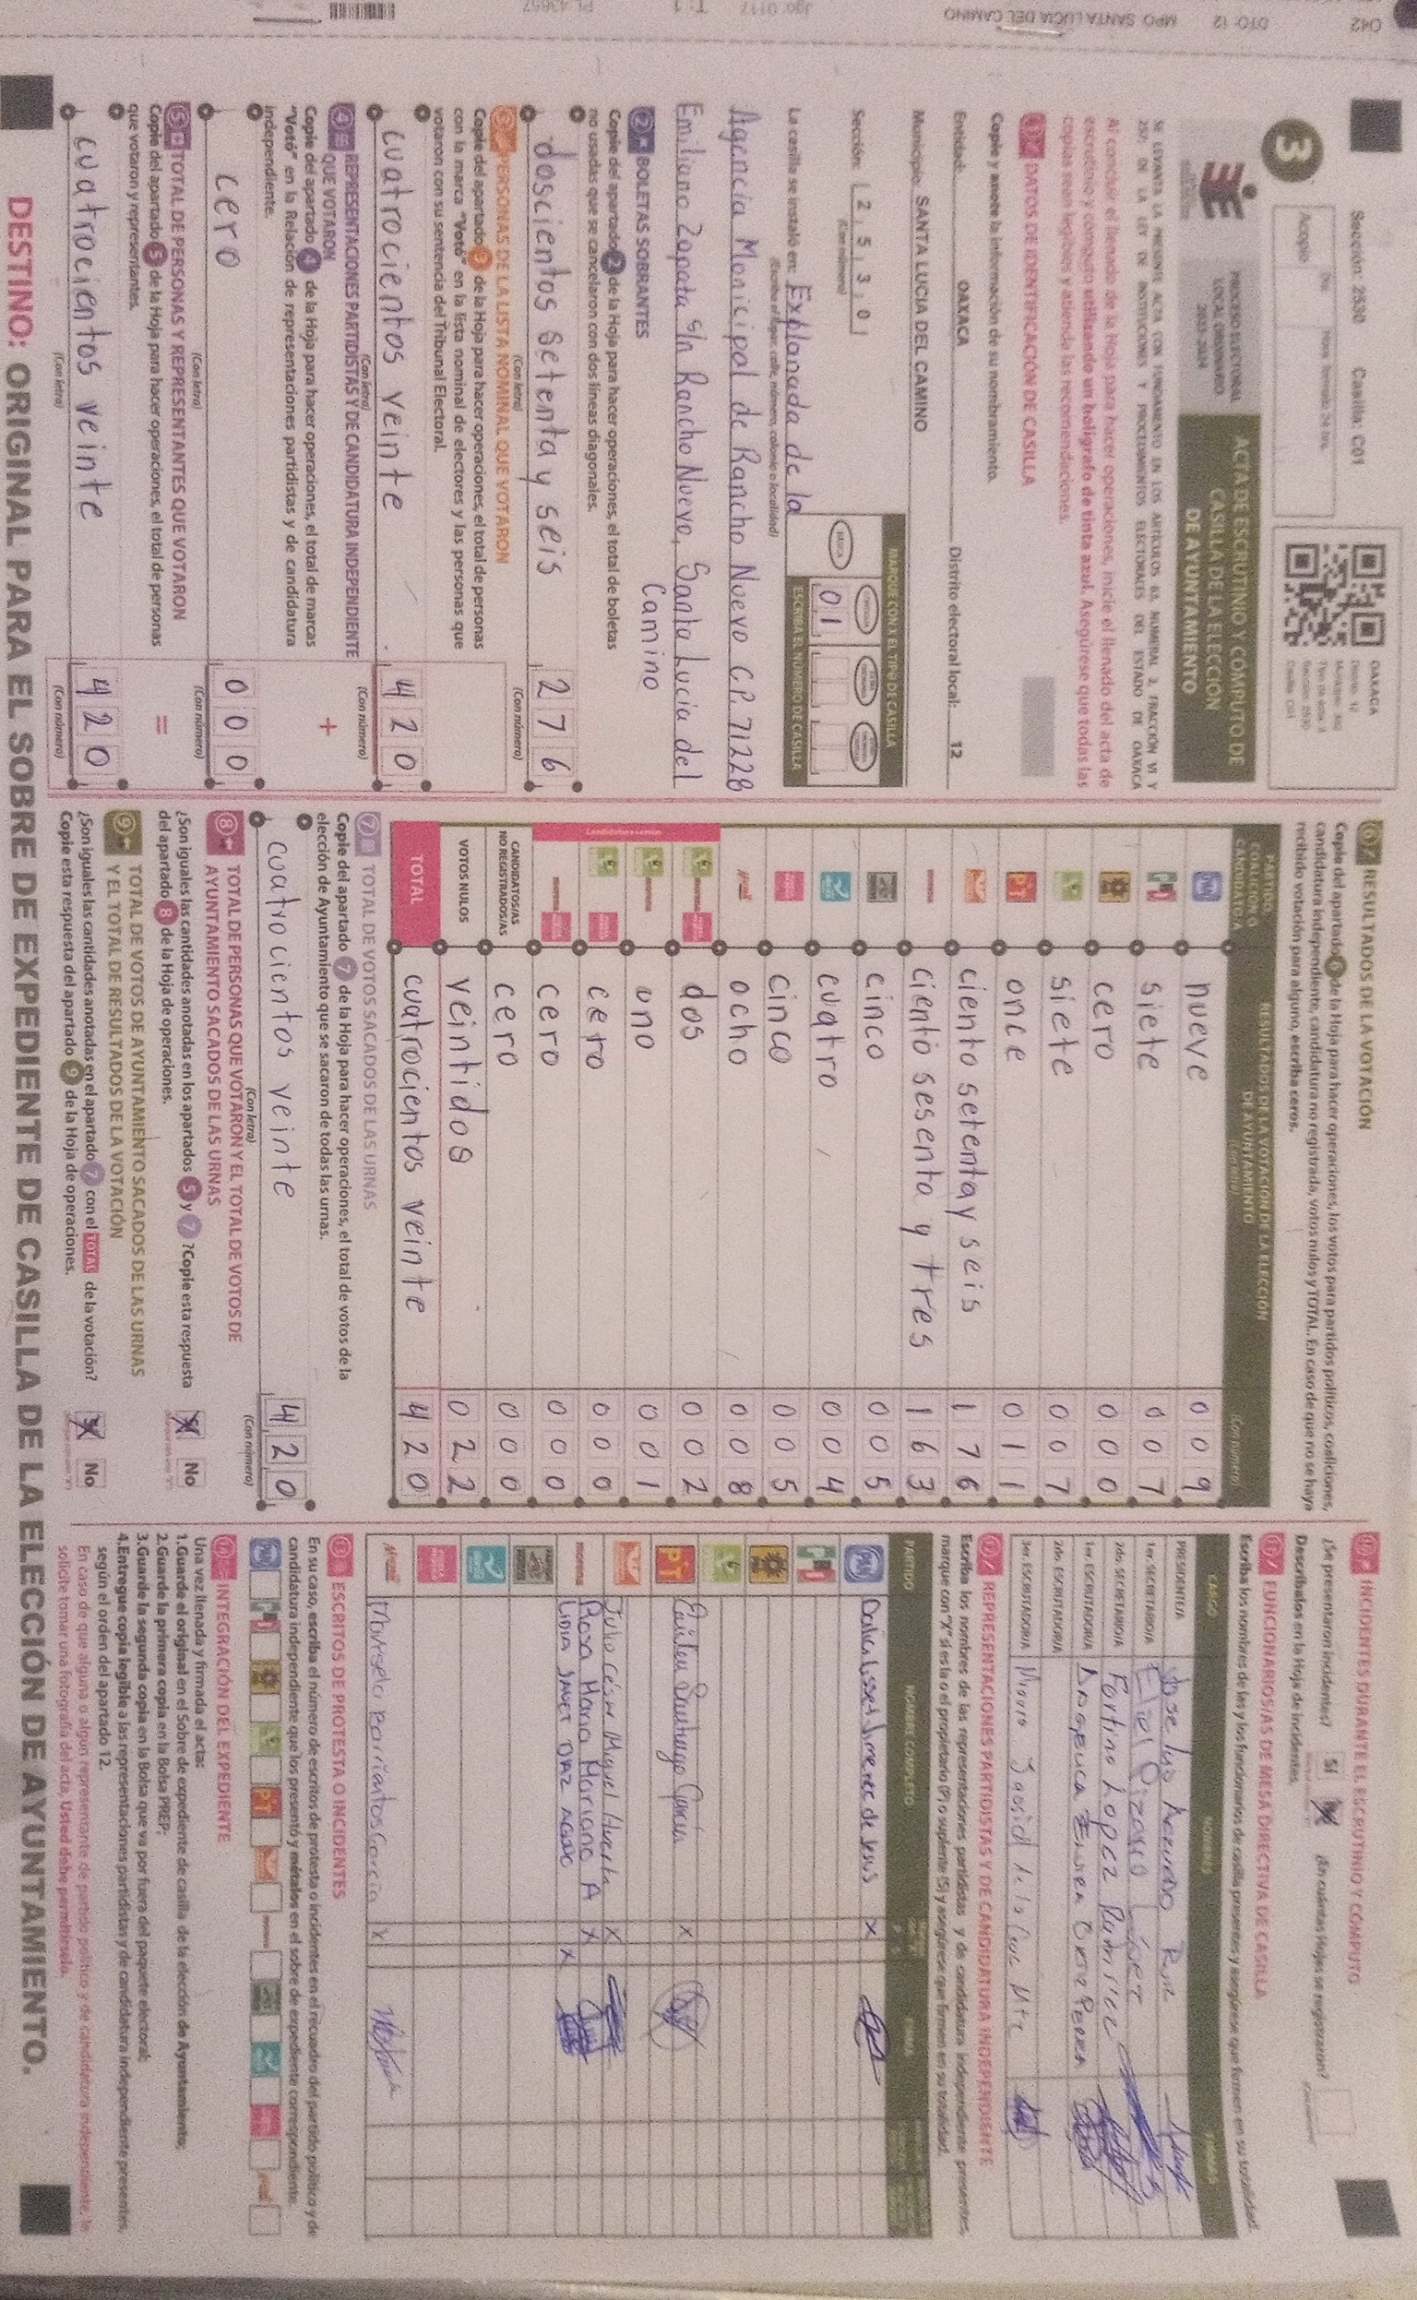 Sección: 2530 Casilla: C01
OAXACA
3
PROCESO ELECTORAL
LOCAL ORDINARIO
2023-2024
ACTA DE ESCRUTINIO Y CÓMPUTO DE
CASILLA DE LA ELECCIÓN
DE AYUNTAMIENTO
Al concluir el llenado de la Hoja para hacer operaciones, inicie el llenado del acta de
escrutinio y cómputo utilizando un bolígrafo de tinta azul. Asegúrese que todas las
copias sean legibles y atienda las recomendaciones.
1 DATOS DE IDENTIFICACIÓN DE CASILLA
Copie y anote la información de su nombramiento.
Entidad: OAXACA Distrito electoral local: 12
Municipio: SANTA LUCIA DEL CAMINO
Sección: 2 5 3 0
(Con número)
MARQUE CON X EL TIPO DE CASILLA
ESCRIBA EL NÚMERO DE CASILLA
01
La casilla se instaló en: Explanada de la
(Escriba el lugar, calle, número, colonia o localidad)
Agencia Monicipal de Rancho Nuevo C.P. 71228
Emiliano Zapata S/n Rancho Nuevo, Santa Lucia del
Camino
2 BOLETAS SOBRANTES
Copie del apartado 2 de la Hoja para hacer operaciones, el total de boletas
no usadas que se cancelaron con dos líneas diagonales.
doscientos setenta y seis 2 7 6
(Con letra) (Con número)
3 PERSONAS DE LA LISTA NOMINAL QUE VOTARON
Copie del apartado 3 de la Hoja para hacer operaciones, el total de personas
con la marca "Votó" en la lista nominal de electores y las personas que
votaron con su sentencia del Tribunal Electoral.
cuatrocientos veinte 4 2 0
(Con letra) (Con número)
4 REPRESENTACIONES PARTIDISTAS Y DE CANDIDATURA INDEPENDIENTE
QUE VOTARON
Copie del apartado 4 de la Hoja para hacer operaciones, el total de marcas
"Votó" en la Relación de representaciones partidistas y de candidatura
independiente.
+
cero 0 0 0
(Con letra) (Con número)
5 TOTAL DE PERSONAS Y REPRESENTANTES QUE VOTARON
Copie del apartado 5 de la Hoja para hacer operaciones, el total de personas
que votaron y representantes.
=
cuatrocientos veinte 4 2 0
(Con letra) (Con número)
6 RESULTADOS DE LA VOTACIÓN
Copie del apartado 6 de la Hoja para hacer operaciones, los votos para partidos políticos, coaliciones,
candidatura independiente, candidatura no registrada, votos nulos y TOTAL. En caso de que no se haya
recibido votación para alguno, escriba ceros.
PARTIDO,
COALICIÓN O
CANDIDATO/A
RESULTADOS DE LA VOTACIÓN DE LA ELECCIÓN
DE AYUNTAMIENTO
(Con letra) (Con número)
PAN nueve 0 0 9
siete 0 0 7
cero 0 0 0
siete 0 0 7
PT once 0 1 1
ciento setenta y seis 1 7 6
morena ciento sesenta y tres 1 6 3
cinco 0 0 5
cuatro 0 0 4
cinco 0 0 5
ocho 0 0 8
dos 0 0 2
uno 0 0 1
cero 0 0 0
cero 0 0 0
CANDIDATOS/AS
NO REGISTRADOS/AS cero 0 0 0
VOTOS NULOS veintidos 0 2 2
TOTAL cuatrocientos veinte 4 2 0
7 TOTAL DE VOTOS SACADOS DE LAS URNAS
Copie del apartado 7 de la Hoja para hacer operaciones, el total de votos de la
elección de Ayuntamiento que se sacaron de todas las urnas.
cuatrocientos veinte 4 2 0
(Con letra) (Con número)
8 TOTAL DE PERSONAS QUE VOTARON Y EL TOTAL DE VOTOS DE
AYUNTAMIENTO SACADOS DE LAS URNAS
¿Son iguales las cantidades anotadas en los apartados 5 y 7 ?Copie esta respuesta
del apartado 8 de la Hoja de operaciones.
No
9 TOTAL DE VOTOS DE AYUNTAMIENTO SACADOS DE LAS URNAS
Y EL TOTAL DE RESULTADOS DE LA VOTACIÓN
¿Son iguales las cantidades anotadas en el apartado 7 con el TOTAL de la votación?
Copie esta respuesta del apartado 9 de la Hoja de operaciones.
No
10 INCIDENTES DURANTE EL ESCRUTINIO Y CÓMPUTO
¿Se presentaron incidentes? Sí ¿En cuántas Hojas se registraron?
Descríbalos en la Hoja de incidentes.
11 FUNCIONARIOS/AS DE MESA DIRECTIVA DE CASILLA
Escriba los nombres de las y los funcionarios de casilla presentes y asegúrese que firmen en su totalidad.
CARGO NOMBRES FIRMAS
PRESIDENTE/A
1er. SECRETARIO/A
2do. SECRETARIO/A Fortino Lopez Ramirez
1er. ESCRUTADOR/A
2do. ESCRUTADOR/A
3er. ESCRUTADOR/A
12 REPRESENTACIONES PARTIDISTAS Y DE CANDIDATURA INDEPENDIENTE
Escriba los nombres de las representaciones partidistas y de candidatura independiente presentes,
marque con "X" si es la o el propietario (P) o suplente (S) y asegúrese que firmen en su totalidad.
PARTIDO NOMBRE COMPLETO FIRMA
PAN Dalia Lisset Jimenez de Jesús X
PT Santiago García X
Julio César Miguel Huerta X
morena Rosa Maria Mariano A X
LIDIA JANET DIAZ X
Marisela Barriantos Garcia X
13 ESCRITOS DE PROTESTA O INCIDENTES
En su caso, escriba el número de escritos de protesta o incidentes en el recuadro del partido político y de
candidatura independiente que los presentó y métalos en el sobre de expediente correspondiente.
INTEGRACIÓN DEL EXPEDIENTE
Una vez llenada y firmada el acta:
1.Guarde el original en el Sobre de expediente de casilla de la elección de Ayuntamiento;
2.Guarde la primera copia en la Bolsa PREP;
3.Guarde la segunda copia en la Bolsa que va por fuera del paquete electoral;
4.Entregue copia legible a las representaciones partidistas y de candidatura independiente presentes,
según el orden del apartado 12.
En caso de que alguna o algún representante de partido político y de candidatura independiente, le
solicite tomar una fotografía del acta, Usted debe permitírselo.
DESTINO: ORIGINAL PARA EL SOBRE DE EXPEDIENTE DE CASILLA DE LA ELECCIÓN DE AYUNTAMIENTO.